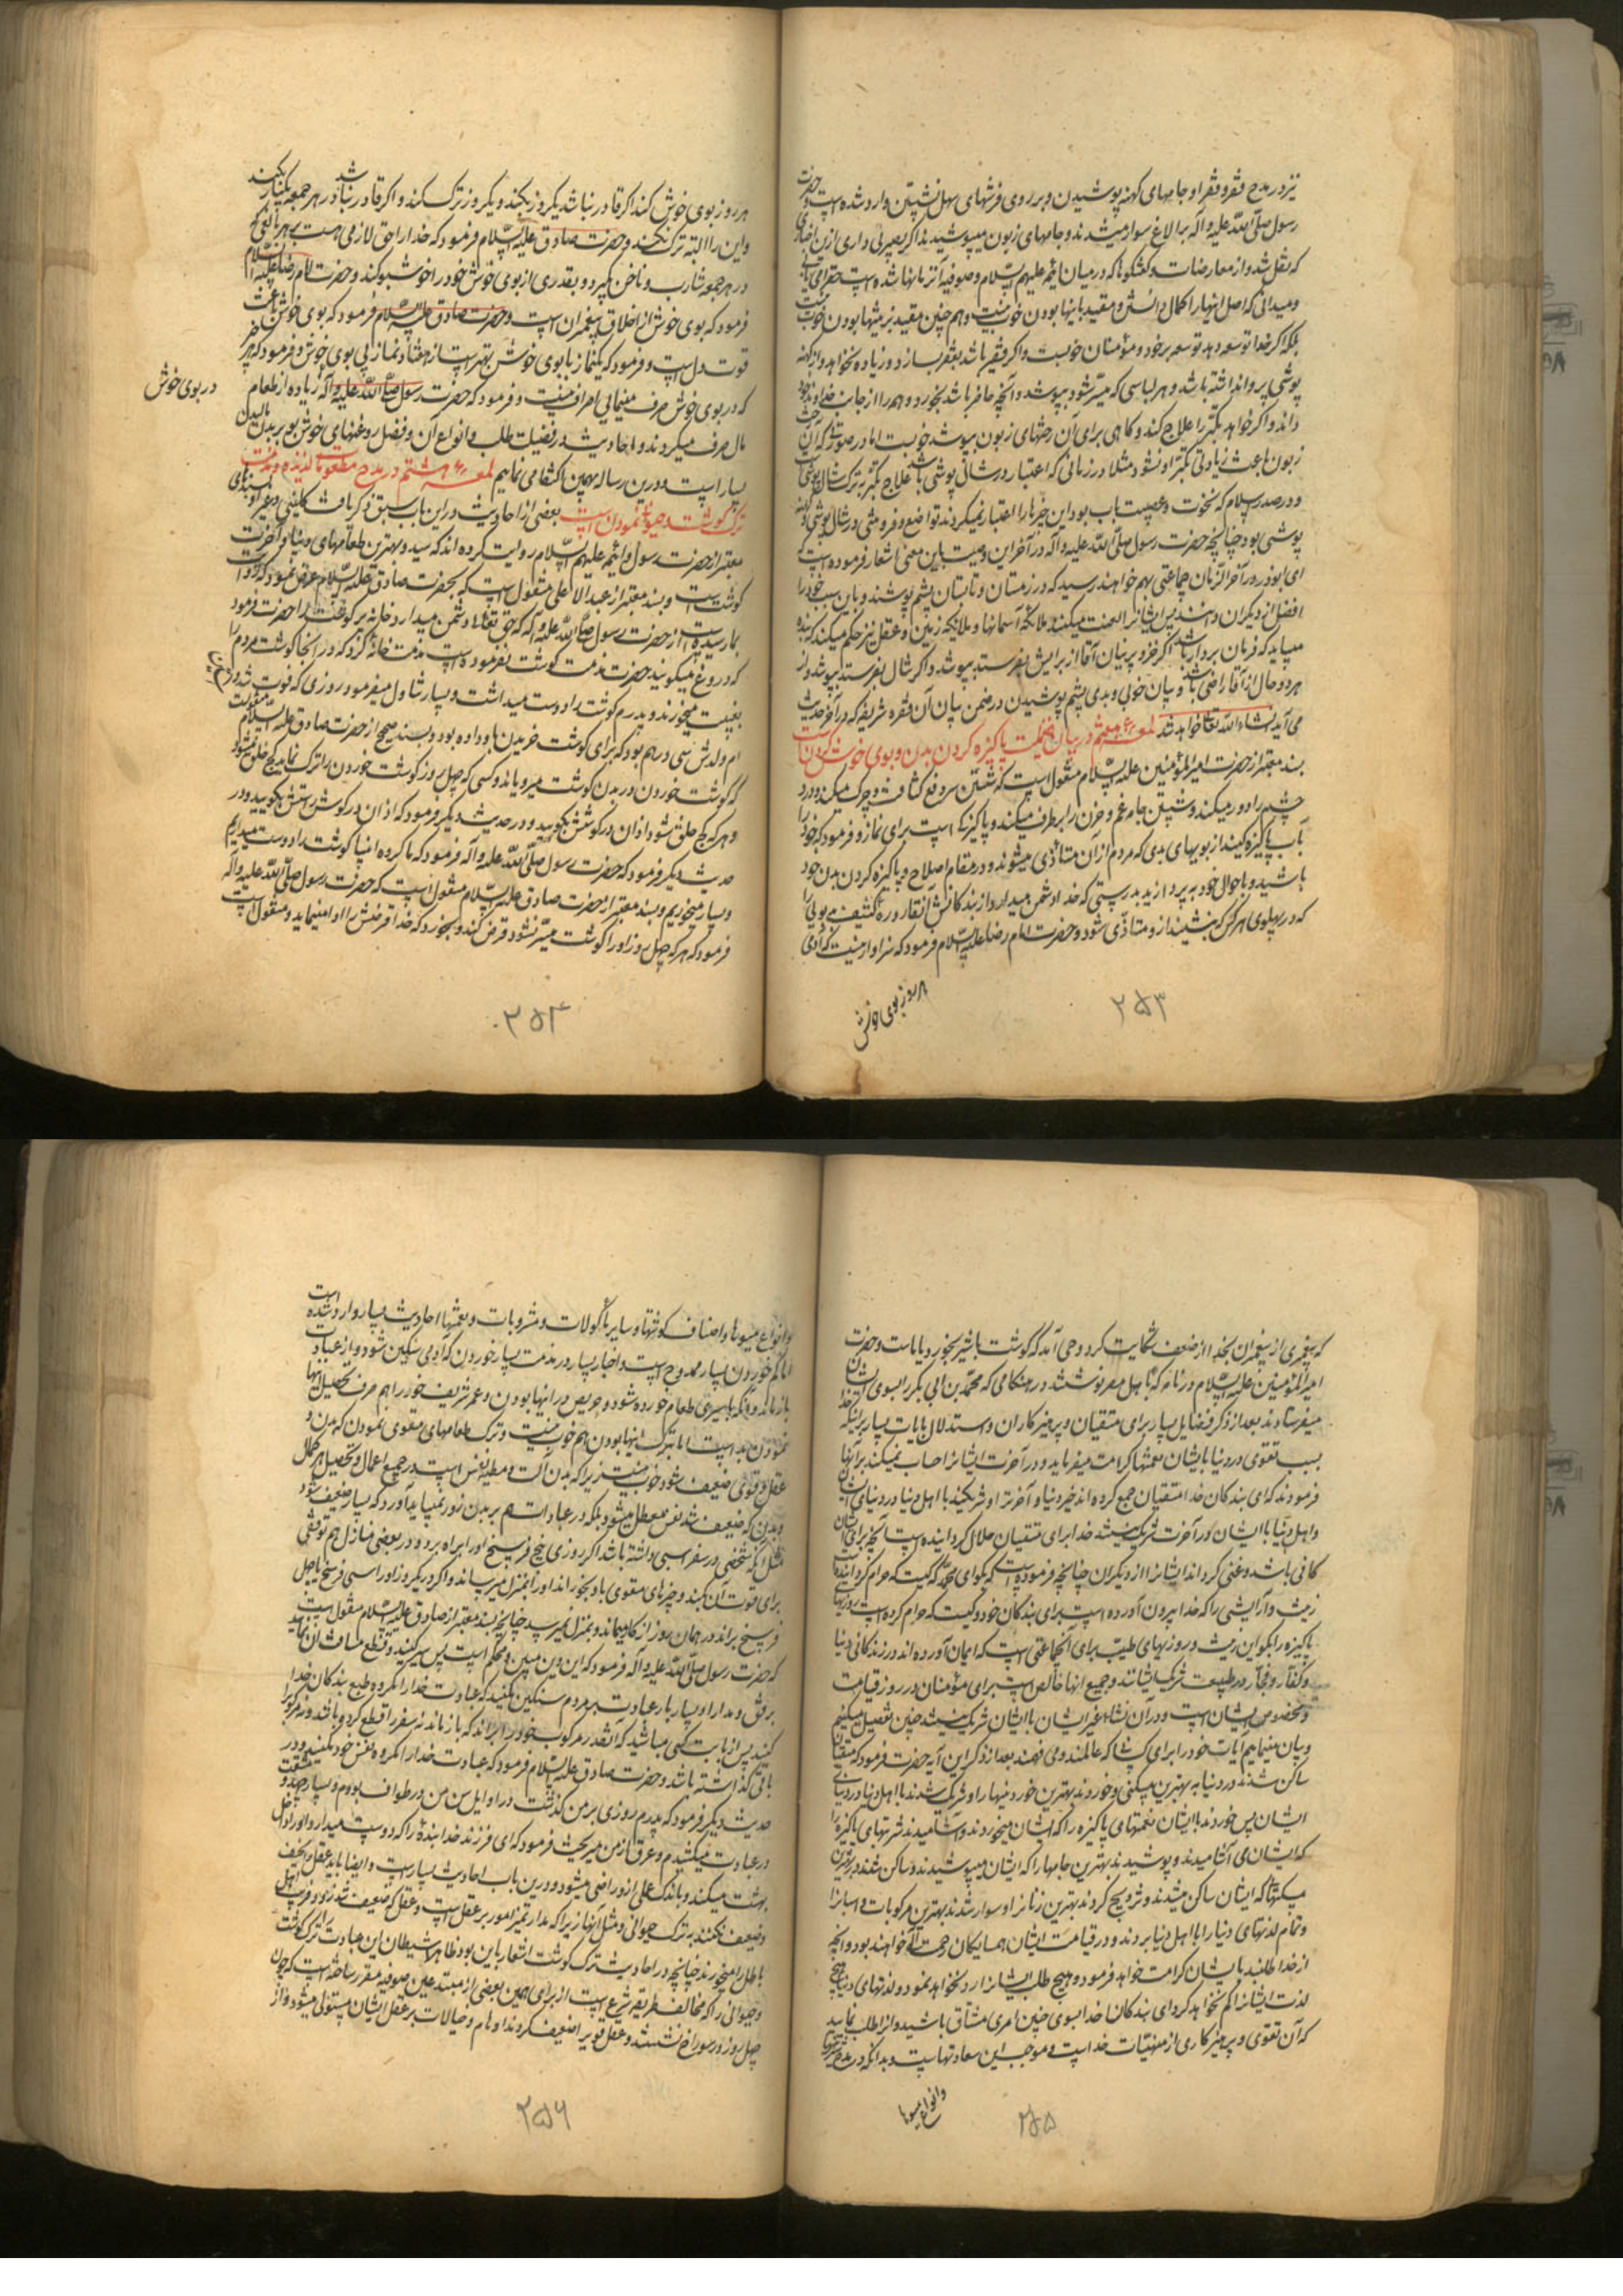 نیز در مدح فقر و فقرا و جامهای کهنه پوشیدن و بر روی فرشهای سهل نشستن وارد شده است و حضرت
رسول صلّی اللّه علیه و آله بر الاغ سوار میشدند و جامهای زبون میپوشیدند اگر بصیرتی داری ازین اخباری
که نقل شد و از معارضات و گفتگوها که در میان ائمّه علیهم السّلام و صوفیّه آنزمانها شده است حق را می‌یابی
و میدانی که اصل اینها را کمال دانستن و مقیّد باینها بودن خوب نیست و هم چنین مقیّد بزینتها بودن خوب نیست
بلکه اگر خدا توسعه دهد توسعه بر خود و مؤمنان خوبست و اگر فقیر باشد بفقر بسازد و زیاده نخواهد و از کهنه
پوشی پروا نداشته باشد و هر لباسی که میسّر شود بپوشد و آنچه حاضر باشد بخورد و همه را از جانب خداوند خود
داند و اگر خواهد تکبّر را علاج کند و گاهی برای آن رختهای زبون بپوشد خوبست امّا در صورتی که آن رخت
زبون باعث زیادتی تکبّر او نشود مثلا در زمانی که اعتبار در شال پوشی باشد علاج تکبّر بترک شال پوشی است
و در صدر اسلام که نخوت و عصبیت باب بود این چیزها را اعتبار نمیکردند تواضع و فروتنی در شال پوشی و کهنه
پوشی بود چنانچه حضرت رسول صلّی اللّه علیه و آله در آخر این وصیّت باین معنی اشعار فرموده است که
ای ابوذر در آخر الزّمان جماعتی بهم خواهند رسید که در زمستان و تابستان پشم پوشند و باین سبب خود را
افضل از دیگران دانند پس ایشانرا لعنت میکنند ملائکه آسمانها و ملائکه زمین و عقل نیز حکم میکند که بنده
میباید که فرمان بردار باشد اگر خز و پرنیان آقا از برایش بفرستد بپوشد و اگر شال بفرستد بپوشد و در
هر دو حال از آقا راضی باشد و بیان خوبی و بدی پشم پوشیدن در ضمن بیان آن فقره شریفه که در آخر حدیث
می‌آید انشاء اللّه تعالی خواهد شد لمعهٔ هفتم در بیان فضیلت پاکیزه کردن بدن و بوی خوش کردن است
بسند معتبر از حضرت امیر المؤمنین علیه السّلام منقول است که شستن سر دفع کثافت و چرک میکند و درد
چشم را دور میکند و شستن جامه غم و حزن را برطرف میکند و پاکیزگی است برای نماز و فرمود که خود را
بآب پاکیزه کنید از بویهای بدی که مردم از آن متأذّی میشوند و در مقام اصلاح و پاکیزه کردن بدن خود
باشید و باحوال خود بپردازید بدرستی که خدا دشمن میدارد از بندگانش آن قاذورهٔ کثیف بدبوئی را
که در پهلوی هر کس که بنشیند ازو متأذّی شود و حضرت امام رضا علیه السّلام فرمود که سزاوار نیست که آدمی
هر روز بوی خوش
۲۵۳
هر روز بوی خوش کند اگر قادر نباشد یکروز بکند و یکروز ترک کند و اگر قادر نباشد در هر جمعه یکبار بکند
و این را البته ترک نکند و حضرت صادق علیه السّلام فرمود که خدا را حقّی لازمی هست بر هر بالغی که
در هر جمعه شارب و ناخن گیرد و بقدری از بوی خوش خود را خوشبو کند و حضرت امام رضا علیه السلام
فرمود که بوی خوش از اخلاق پیغمبران است و حضرت صادق علیه السّلام فرمود که بوی خوش باعث
قوّت دل است و فرمود که یکنماز با بوی خوش بهتر است از هفتاد نماز بی بوی خوش و فرمود که هر چه
که در بوی خوش صرف مینمایی اسراف نیست و فرمود که حضرت رسول صلّی اللّه علیه و آله زیاده از طعام
در بوی خوش
مال صرف میکردند و احادیث در فضیلت طیب و انواع آن و فضل روغنهای خوش بو بر بدن مالیدن
بسیار است و درین رساله بهمین اکتفا می‌نمایم لمعهٔ هشتم در مدح مطعومات لذیذه و مذمّت
ترک گوشت و حیوانی نمودن است بعضی از احادیث در این باب سبق ذکر یافت و کلینی و غیر او بسندهای
معتبر از حضرت رسول و ائمّه علیهم السّلام روایت کرده‌اند که سیّد و بهترین طعامهای دنیا و آخرت
گوشت است و بسند معتبر از عبد الاعلی منقول است که بحضرت صادق علیه السّلام عرض نمود که روایت
بما رسیده است از حضرت رسول صلّی اللّه علیه و آله که حق تعالی دشمن میدارد خانهٔ پر گوشت را حضرت فرمود
که دروغ میگویند حضرت مذمّت گوشت نفرموده است مذمّت خانهٔ کرد که در آنجا گوشت مردم را
بغیبت میخورند و پدرم گوشت را دوست میداشت و بسیار تناول میفرمود روزی که فوت شد در
ام ولدش سی درهم بود که برای گوشت خریدن باو داده بود و بسند صحیح از حضرت صادق علیه السلام منقول است
که گوشت خوردن در بدن گوشت میرویاند و کسی که چهل روز گوشت خوردن را ترک نماید کج خلق میشود
و هر که کج خلق شود اذان در گوشش بگویید و در حدیث دیگر فرمود که اذان در گوش راستش بگویید و در
حدیث دیگر فرمود که حضرت رسول صلّی اللّه علیه و آله فرمود که ما گروه انبیا گوشت را دوست میداریم
و بسیار میخوریم و بسند معتبر از حضرت صادق علیه السّلام منقول است که حضرت رسول صلّی اللّه علیه و آله
فرمود که هر که چهل روز او را گوشت میسّر نشود قرض کند و بخورد که خدا قرضش را ادا مینماید و منقول است
۲۵۴
که پیغمبری از پیغمبران بخدا از ضعف شکایت کرد وحی آمد که گوشت با شیر بخور و یا ماست و حضرت
امیر المؤمنین علیه السّلام در نامه که باهل مصر نوشتند در هنگامی که محمّد بن ابی بکر را بسوی ایشان
میفرستادند بعد از ذکر فضایل بسیار برای متّقیان و پرهیز کاران و استدلال بآیات بسیار بر اینکه خدا
بسبب تقوی در دنیا بایشان نعمتها کرامت میفرماید و در آخرت ایشانرا حساب نمیکند بر آنها
فرمودند که ای بندگان خدا متّقیان جمع کرده‌اند خیر دنیا و آخرت را و شریکند با اهل دنیا در دنیای ایشان
و اهل دنیا با ایشان در آخرت شریک نیستند خدا برای متّقیان حلال گردانیده است آنچه برای ایشان
کافی باشد و غنی گرداند ایشانرا از دیگران چنانچه فرموده است که بگو ای محمّد که کیست که حرام گردانیده است
زینت و آرایشی را که خدا بیرون آورده است برای بندگان خود و کیست که حرام کرده است روزیهای
پاکیزه را بگو این زینت و روزیهای طیّب برای آنجماعتی است که ایمان آورده‌اند در زندگانی دنیا
و کفّار و فجّار در طفیلیت شریک ایشانند و جمیع اینها خالص است برای مؤمنان در روز قیامت
و مخصوص ایشان است و در آن نشاء غیر ایشان با ایشان شریک نیستند چنین تفصیل میکنیم
و بیان مینماییم آیات خود را برای کسانی که عالمند و می‌فهمند بعد از ذکر این آیه حضرت فرمود که متّقیان
ساکن شدند در دنیا به بهترین مسکنی و خوردند بهترین خوردنیها را و شریک شدند با اهل دنیا در دنیای
ایشان پس خوردند با ایشان نعمتهای پاکیزه را که ایشان میخوردند و آشامیدند شربتهای پاکیزه را
که ایشان می آشامیدند و پوشیدند بهترین جامها را که ایشان میپوشیدند و ساکن شدند در بهترین
مسکنها که ایشان ساکن میشدند و تزویج کردند بهترین زنانرا و سوار شدند بهترین مرکوبات و اسبانرا
و تمام لذتهای دنیا را با اهل دنیا بردند و در قیامت ایشان همسایگان رحمت الهی خواهند بود و آنچه
از خدا طلبند بایشان کرامت خواهد فرمود و هیچ طلب ایشانرا رد نخواهد نمود و لذتهای دنیا هیچ
لذت ایشانرا کم نخواهد کرد ای بندگان خدا بسوی چنین امری مشتاق باشید و آنرا طلب نمایید
که آن تقوی و پرهیز کاری از منهیّات خداست و موجب این سعادتهاست و بدانکه در مدح شیرینی
و انواع میوها
۲۵۵
و انواع میوها و اصناف گوشتها و سایر مأکولات و مشروبات و نعمتها احادیث بسیار وارد شده است
امّا کم خوردن بسیار ممدوح است و اخبار بسیار در مذمّت بسیار خوردن که آدمی سنگین شود و از عبادت
باز ماند و آنکه با سیری طعام خورده شود و حریص در اینها بودن و عمر شریف خود را هم صرف تحصیل اینها
نمودن بد است امّا بترک اینها بودن هم خوب نیست و ترک طعامهای مقوّی نمودن که بدن و
عقل و قوی ضعیف شود خوب نیست زیرا که بدن آلت و مطیّه نفس است در جمیع اعمال و تحصیل هر کمال
و بدن که ضعیف شد نفس معطل میشود بلکه در عبادات هم بر بدن زور نمیباید آورد که بسیار ضعیف شود
مثل آنکه شخصی در سفر اسبی داشته باشد اگر روزی پنج فرسخ او را براه برد و در بعضی منازل هم توقفی
برای قوّت آن بکند و چیزهای مقوی باو بخوراند او را بمنزل میرساند و اگر در یکروز او را سی فرسخ یا چهل
فرسخ براند در همان روز از کار میماند و بمنزل نمیرسد چنانچه بسند معتبر از صادق علیه السّلام منقول است
که حضرت رسول صلّی اللّه علیه و آله فرمود که این دین متین و محکم است پس سیر کنید و قطع مسافت آن نمایید
برفق و مدارا و بسیار بار عبادت بر مردم سنگین مکنید که عبادت خدا را مکروه طبع بندگان خدا
کنید پس از بابت کسی مباشید که آنقدر مرکوب خود را براند که باز ماند نه سفر را قطع کرده باشد و نه مرکوبرا
باقی گذاشته باشد و حضرت صادق علیه السّلام فرمود که عبادت خدا را مکروه نفس خود مکنید و در
حدیث دیگر فرمود که پدرم روزی بر من گذشت در اوایل سن من و در طواف بودم و بسیار جهد و مشقت
در عبادت میکشیدم و عرق از من میریخت فرمود که ای فرزند خدا بندهٔ را که دوست میدارد او را داخل
بهشت میکند و باندک عملی ازو راضی میشود و درین باب احادیث بسیار است و ایضا باید عقل را نحیف
و ضعیف نکنند به ترک حیوانی و مثل آنها زیرا که مدار تمیز امور بر عقل است و عقل که ضعیف شد زود فریب اهل
باطل را میخورند چنانچه در احادیث ترک گوشت اشعار باین بود ظاهرا شیطان این عبادت ترک گوشت
و حیوانی را که مخالف طریقه شرع است از برای همین بعضی از مبتدعین صوفیه مقرر ساخته است که چون
چهل روز در سوراخ نشستند و عقل و قوی را ضعیف کردند اوهام و خیالات بر عقل ایشان مستولی میشود و از
۲۵۶